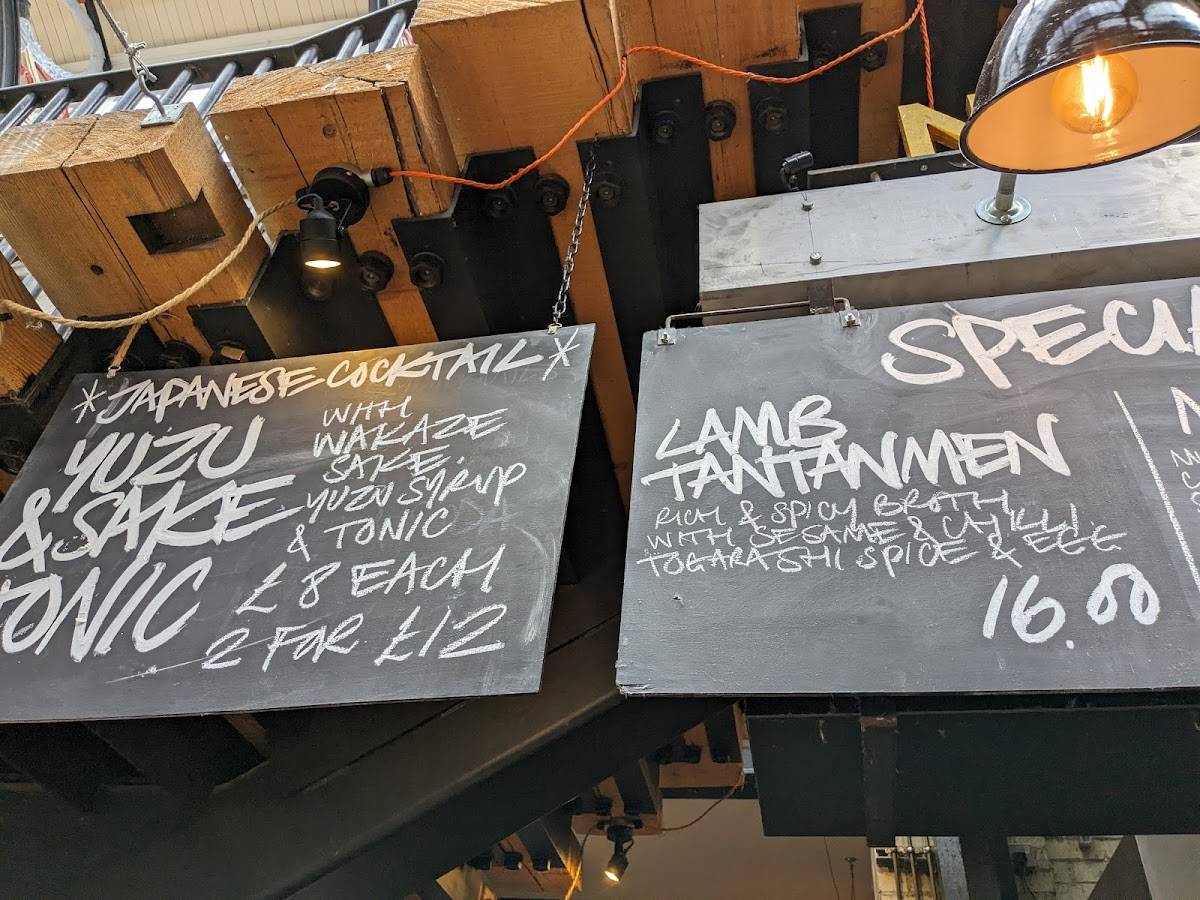 *JAPANESE COCKTAIL*
YUZU
& SAKE
TONIC
WITH
WAKAZE
SAKE.
YUZU SYRUP
& TONIC
£8 EACH
2 FOR £12
LAMB
TANTANMEN
RICH & SPICY BROTH
WITH SESAME & CHILLI,
TOGARASHI SPICE & EGG
16.00